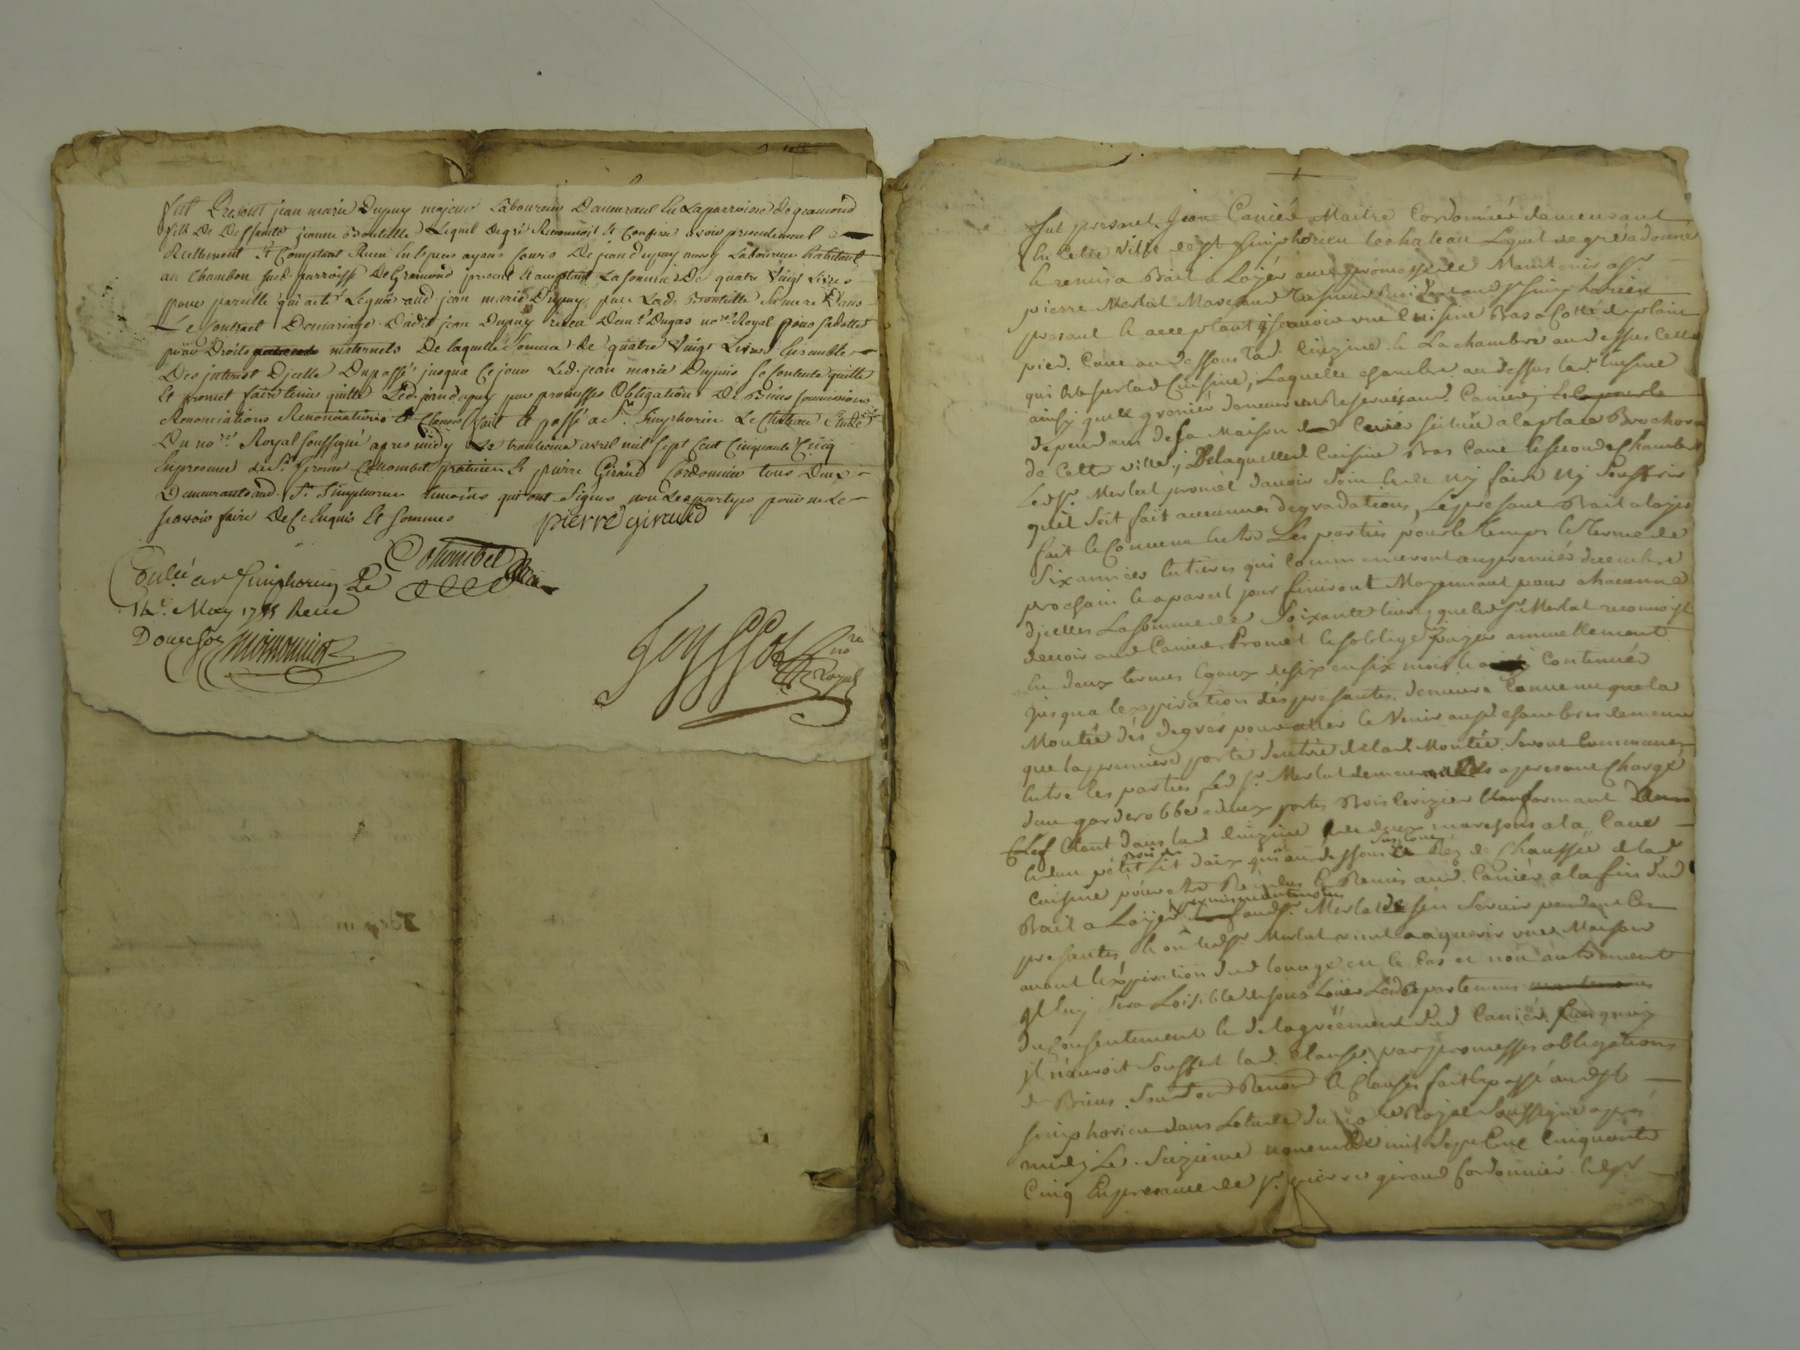 fut Présent jean marie Dupuy majeur Laboureur Demeurant En Laparroisse De gramond
fils De Deffunte jeanne Bouteille Lequel De gré Reconnoit Et Confesse avoir presentement
Reellement Et Comptant Receu En Espèces ayans Cours De jean dupuy aussy Laboureur habitant
au Chambon susd. parroisse De Gramond present Et acceptant La somme De quatre Vingt Livres
pour pareille qui a eté Leguée aud. jean marie Dupuy par Lad. Bouteille Sa mere Dans
Le Contract De mariage Dudit jean Dupuy receu De me. Dugas nore. Royal pour sa dotte
pour Droits maternels De laquelle Somme De quatre Vingt Livres Ensemble
Des interest D'icelle Du passé jusqua Ce jour Led. jean marie Dupuis Se Contente quitte
Et promet faire tenir quitte Led. jean dupuy par promesses Obligations De Biens soumissions
Renonciations Et Clauses fait Et passé a St. Simphorien Le Château Etude
Du nore. Royal soussigné apres midy Le trentieme avril mil sept Cent Cinquante Cinq
En presence de Sr. Colombet praticien Et pierre Giraud Cordonnier tous Deux
Demeurants aud. St. Simphorien temoins qui ont Signés non Les partyes pour ne Le
scavoir faire De Ce Enquis Et sommés
pierre giraud
Colombet
Controlé a St Simphorien Le
14e. May 1755 Receu
Douze sols
Jeyssol nore Royal
fut present Jean Canier Maitre Cordonnier demeurant
En Cette Ville de St Simphorien le chateau Lequel de gré a donné
Et remis a Bail a Loyer avec promesse de Maintenir a Sr.
pierre Merlat Marchand Resident aud St Simphorien
present Et acceptant Scavoir une Cuisine Bas a Coté de plain
pied, Cave au dessous lad. Cuizine Et La chambre au dessus Cette
qui Est sur lad Cuisine, Laquelle chambre au dessus lad. Cuisine
ainsy que le grenier demeurent Reservés aud. Canier,
dependans de sa Maison Canier Scituée a la place
de Cette ville, De laquelle Cuisine Bas Cave Et seconde Chambre
Led Sr. Merlat promet d'avoir soin Et de n'y faire ny Souffrir
qu'il Soit fait aucunnes degradations, Le present Bail a loyer
fait Et Convenu Entre Les parties pour le temps Et Terme de
Six années Entieres qui Commenceront au premier decembre
prochain Et a pareil jour finiront Moyennant pour chacunne
d'icelles La Somme de Soixante livres que led Sr. Merlat reconnoist
devoir aud Canier Promet Et s'oblige luy payer annuellement
En deux termes Egaux de six en six mois Et ainsy Continuer
jusqua lexpiration des presantes, demeure Convenu que la
Montée des degrés pour aller Et Venir aux chambres de meme
que la premiere porte d'entrée de lad. Montée Seront Communes
Entre les parties, Led Sr. Merlat demeure des apresent Chargé
d'un garderobbe a deux portes Bois Cerizier
Clef Etant dans lad Cuizine
Et d'un petit Lit de Chaussée de lad
Cuisine pour etre Rendus Et Remis aud. Canier a la fin dud
Bail a Loyer aud Sr. Merlat de s'en Servir pendant les
presantes, Et ou led Sr Merlat vient a aquerir une Maison
avant l'expiration dud louage en ce Cas et non autrement
Il luy Sera Loisible de sous Louer Led apartemens
du Consentement Et de l'agréement dud Canier,
Il n'auroit Souffert lad. Clause, par promesses obligations
de Biens, Soum. Renon. Et Clauses fait Et passé aud St
Simphorien dans L'etude du nore Royal Soussigné apres
midy Le Seizieme novembre mil Sept Cent Cinquante
Cinq En presence de Sr. pierre giraud Cordonnier Et de Sr